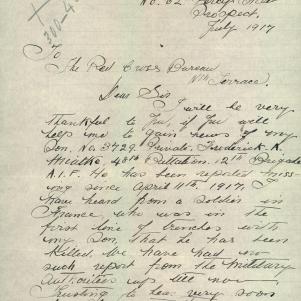 No. 62
Prospect,
July 1917
To
The Red Cross Bureau
Nth Terrace.
Dear Sir
I will be very
thankful to you, if you will
help me to gain news of my
Son. No 3729. Private. Frederick. A.
48th Battalion. 12th Brigade
A.I.F. He has been reported miss-
ing since April 11th, 1917. I
have heard from a soldier in
France who was in the
first line of trenches with
my Son, that he has been
killed. We have had no
such report from the Military
Authorities up till now.
Trusting to hear very soon